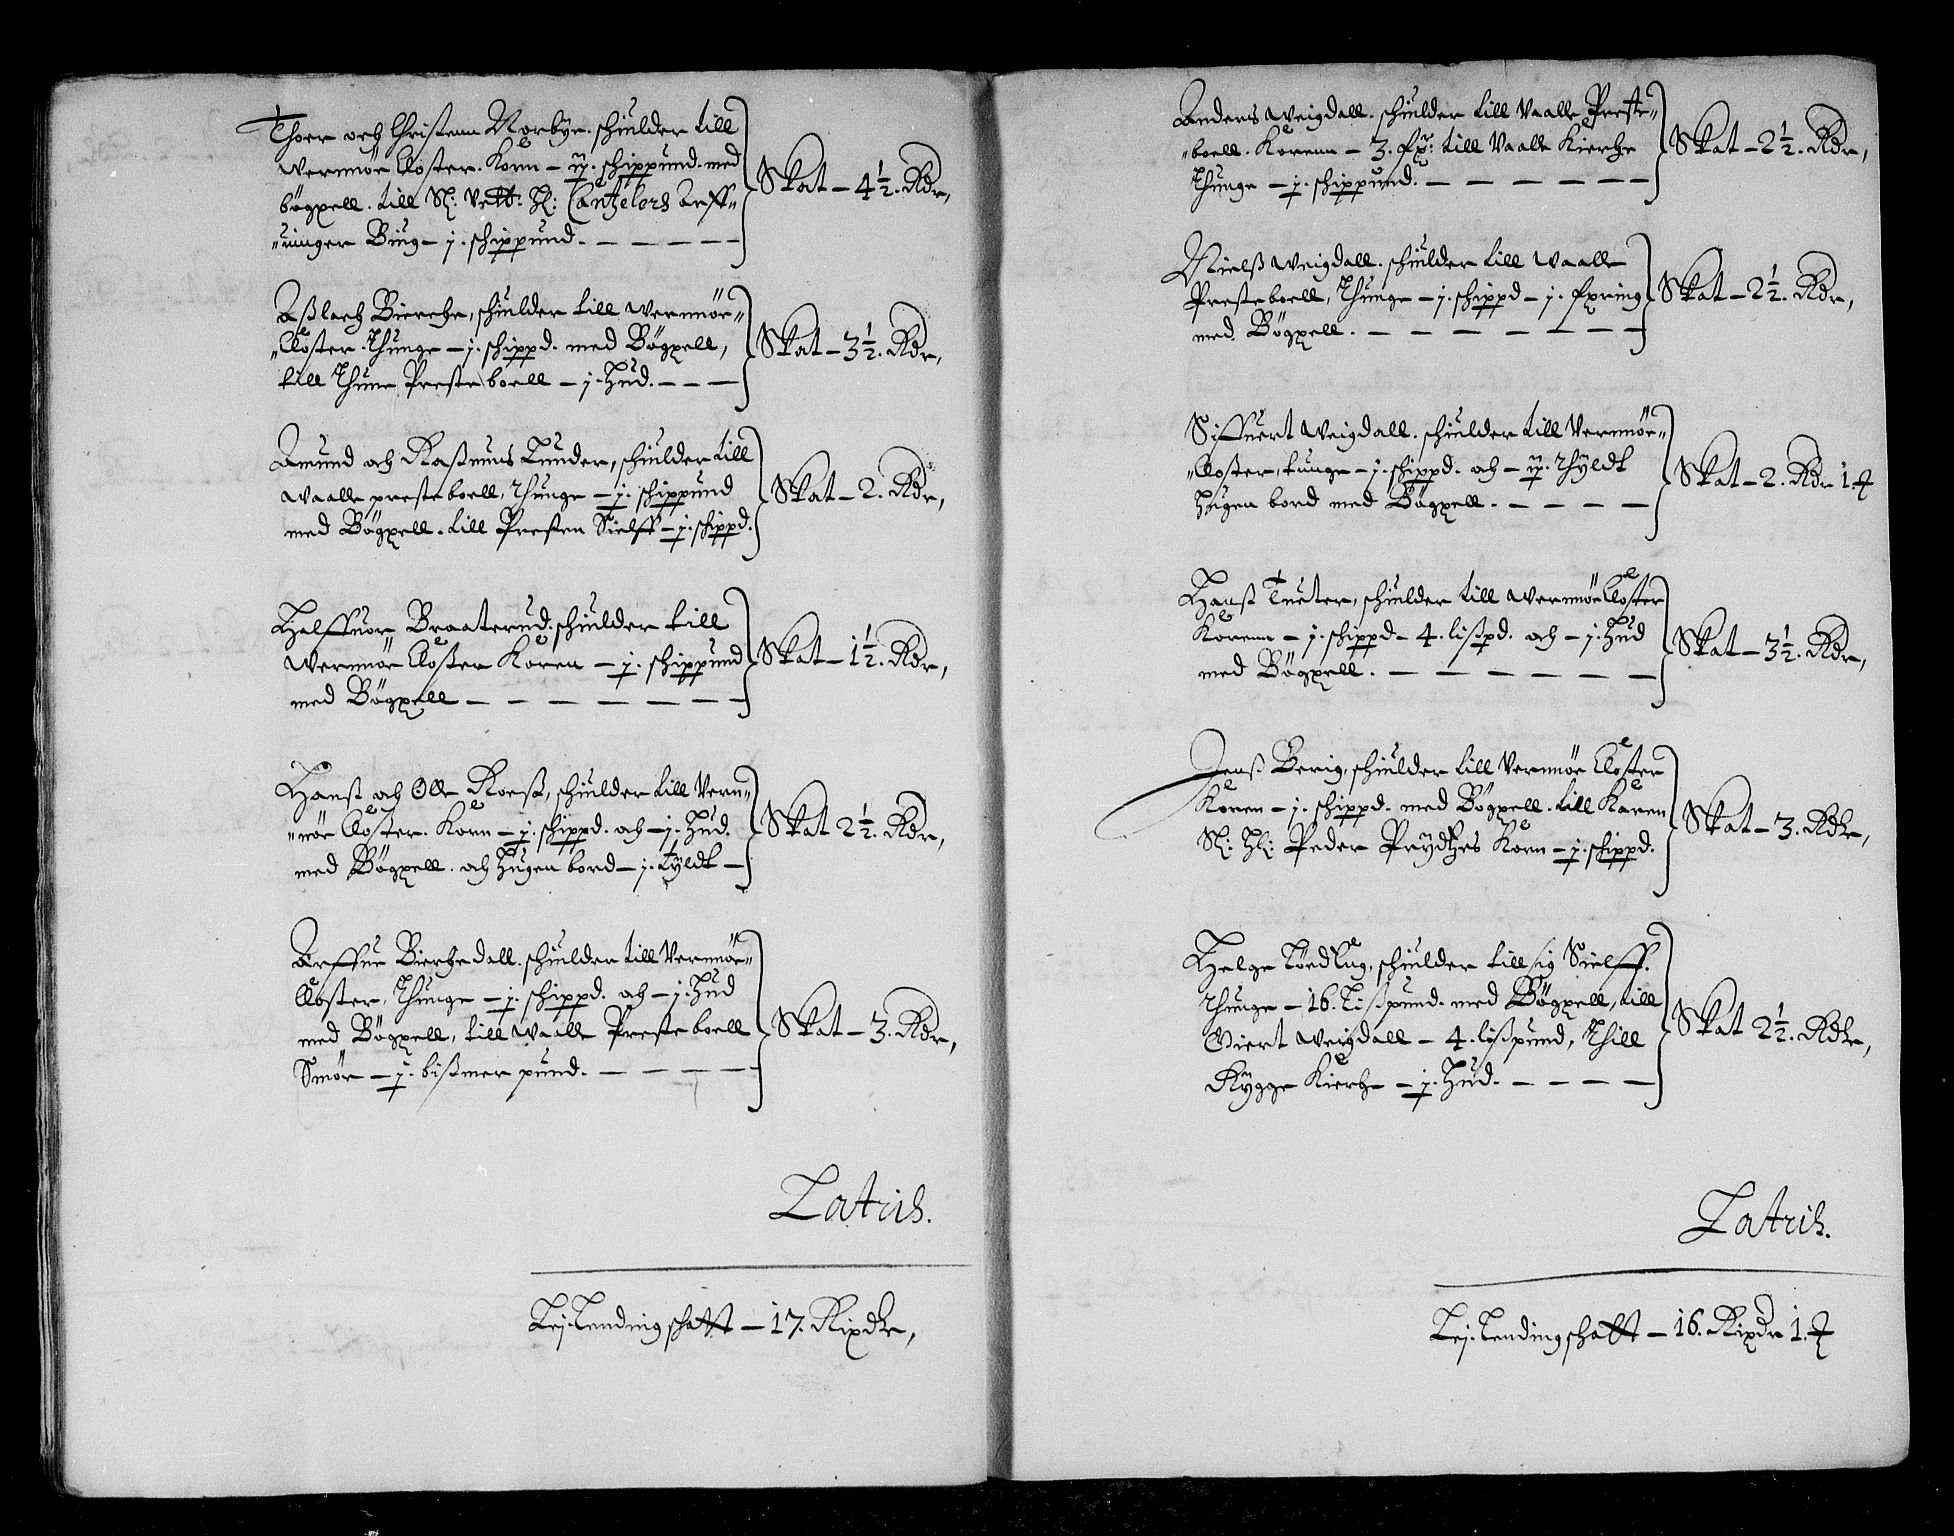 Thoer och Christenn Norbye. schiulder till
wernnöe Closter. Korn – ij. schippund. med
bögxell. till Sl: Vett: Hl: Cantzelers Arff-
uinger Biug – j. schippund.
Skat – 4½. Rdr,
Aßlach Bierche, schiulder till wernnöe-
Closter. Thunge – j. schippd. med Bögxell,
till Thune Preste boell – j. Hud.
Skat – 3½. Rdr,
Amund och Raßmus Tunder, schiulder till
waalle preste boell, Thunge – j. schippund
med Bögxell. till Presten Sielff – j. schippd.
Skat – 2. Rdr,
Halffuor Braaterud. schiulder till
wernnöe Closter Koren – j. schippund
med Bögxell
Skat – 1½. Rdr,
Hanß och Olle Roeß, schiulder till Vern-
nöe Closter. Korn – j. schippd. och – j. Hud.
med Bögxell. och Hugen bord – j. tyldt
Skat 2½. Rdr,
Arffue Bierchedall. schiulder till Vernnöe-
Closter, Thunge – j. schippd. och – j. Hud
med Bögxell, till waalle Preste boell
Smör – j. bißmer pund.
Skat – 3. Rdr,
Latris.
Lej. Lending schatt – 17. Rixdr,
Anders weigdall. schiulder till Vaalle Preste-
boell. Korenn – 3. fx: till Vaalle Kierche
Thunge – j. schippund.
Skat – 2½. Rdr,
Nielß weigdall. schiulder till waalle
Preste boell, Thunge – j. schippd – j. fxring
med Bögxell.
Skat – 2½. Rdr,
Siffuert weigdall. schiulder till Vernnöe-
Closter, tunge – j. schippd. och – ij. Thyldt
Hugen bord med Bögxell.
Skat – 2. Rdr 1. ₰
Hanß Tueter, schiulder till wernnöe Closter
Korenn – j. schippd – 4. lißpd. och – j. Hud
med Bögxell.
Skat – 3½. Rdr,
Jenß Berig, schiulder till Vernnöe Closter
Koren – j. schippd. med Bögxell. till Karen
Sl: Hl: Peder Prydtzes Korn – j. schippd.
Skat – 3. Rdr,
Helge schiulder till sig Sielff.
Thunge – 16. Lißpund. med Bögxell, till
Giert weigdall – 4. lißpund, Thill
Rygge Kierche – j. Hud.
Skat 2½. Rdr,
Latris.
Lej. Lending schatt – 16. Rixdr 1. ₰